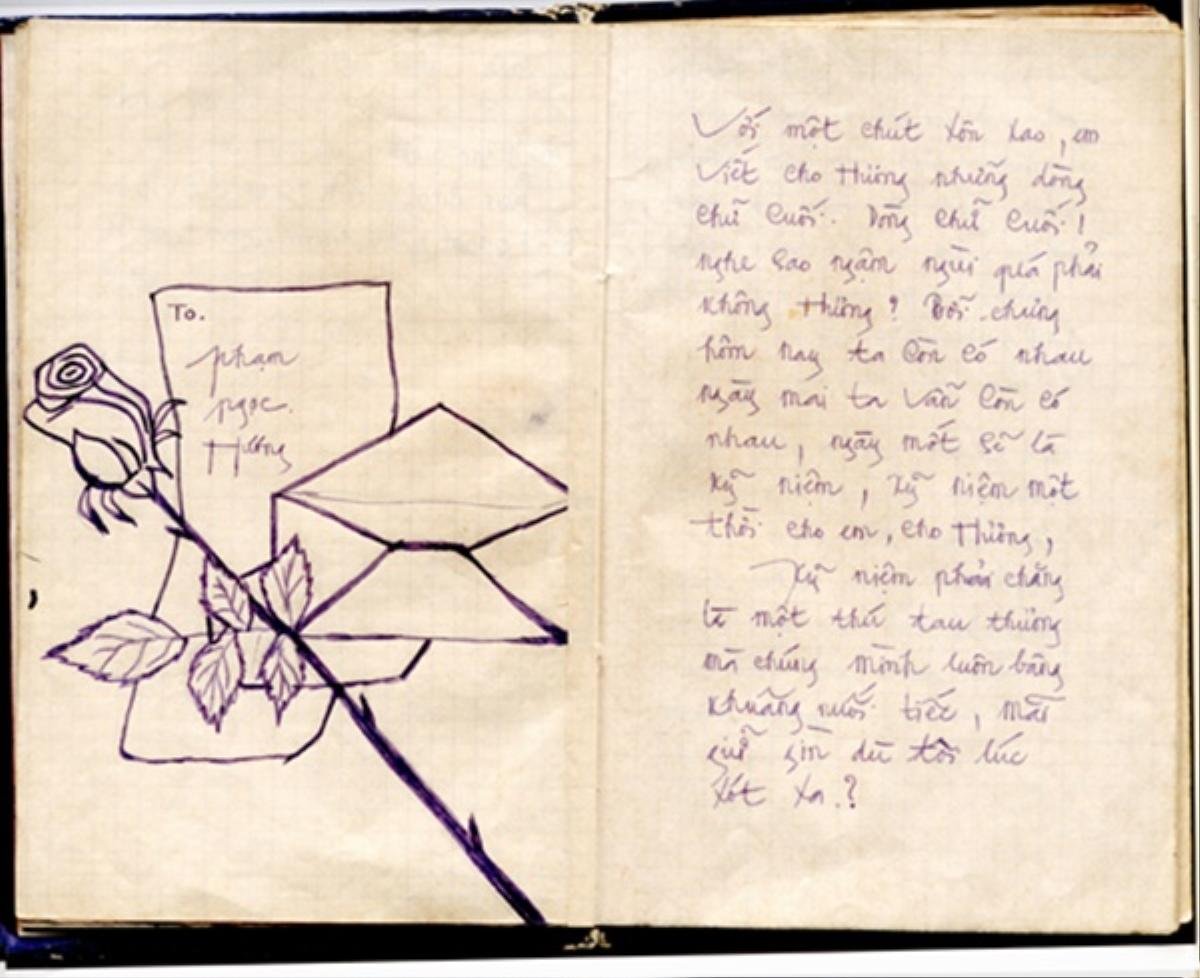 To.
phạm
ngọc.
Hương
Với một chút xôn xao, em
viết cho Hương những dòng
chữ cuối. Dòng chữ cuối!
nghe sao ngậm ngùi quá phải
không Hương? Bởi chưng
hôm nay ta còn có nhau
ngày mai ta vẫn còn có
nhau, ngày mốt sẽ là
kỹ niệm, kỹ niệm một
thời cho em, cho Hương,
Kỹ niệm phải chăng
là một thứ tau thương
mà chúng mình luôn bâng
khuâng nuối tiếc, mãi
giữ gìn dù tới lúc
xót xa.?